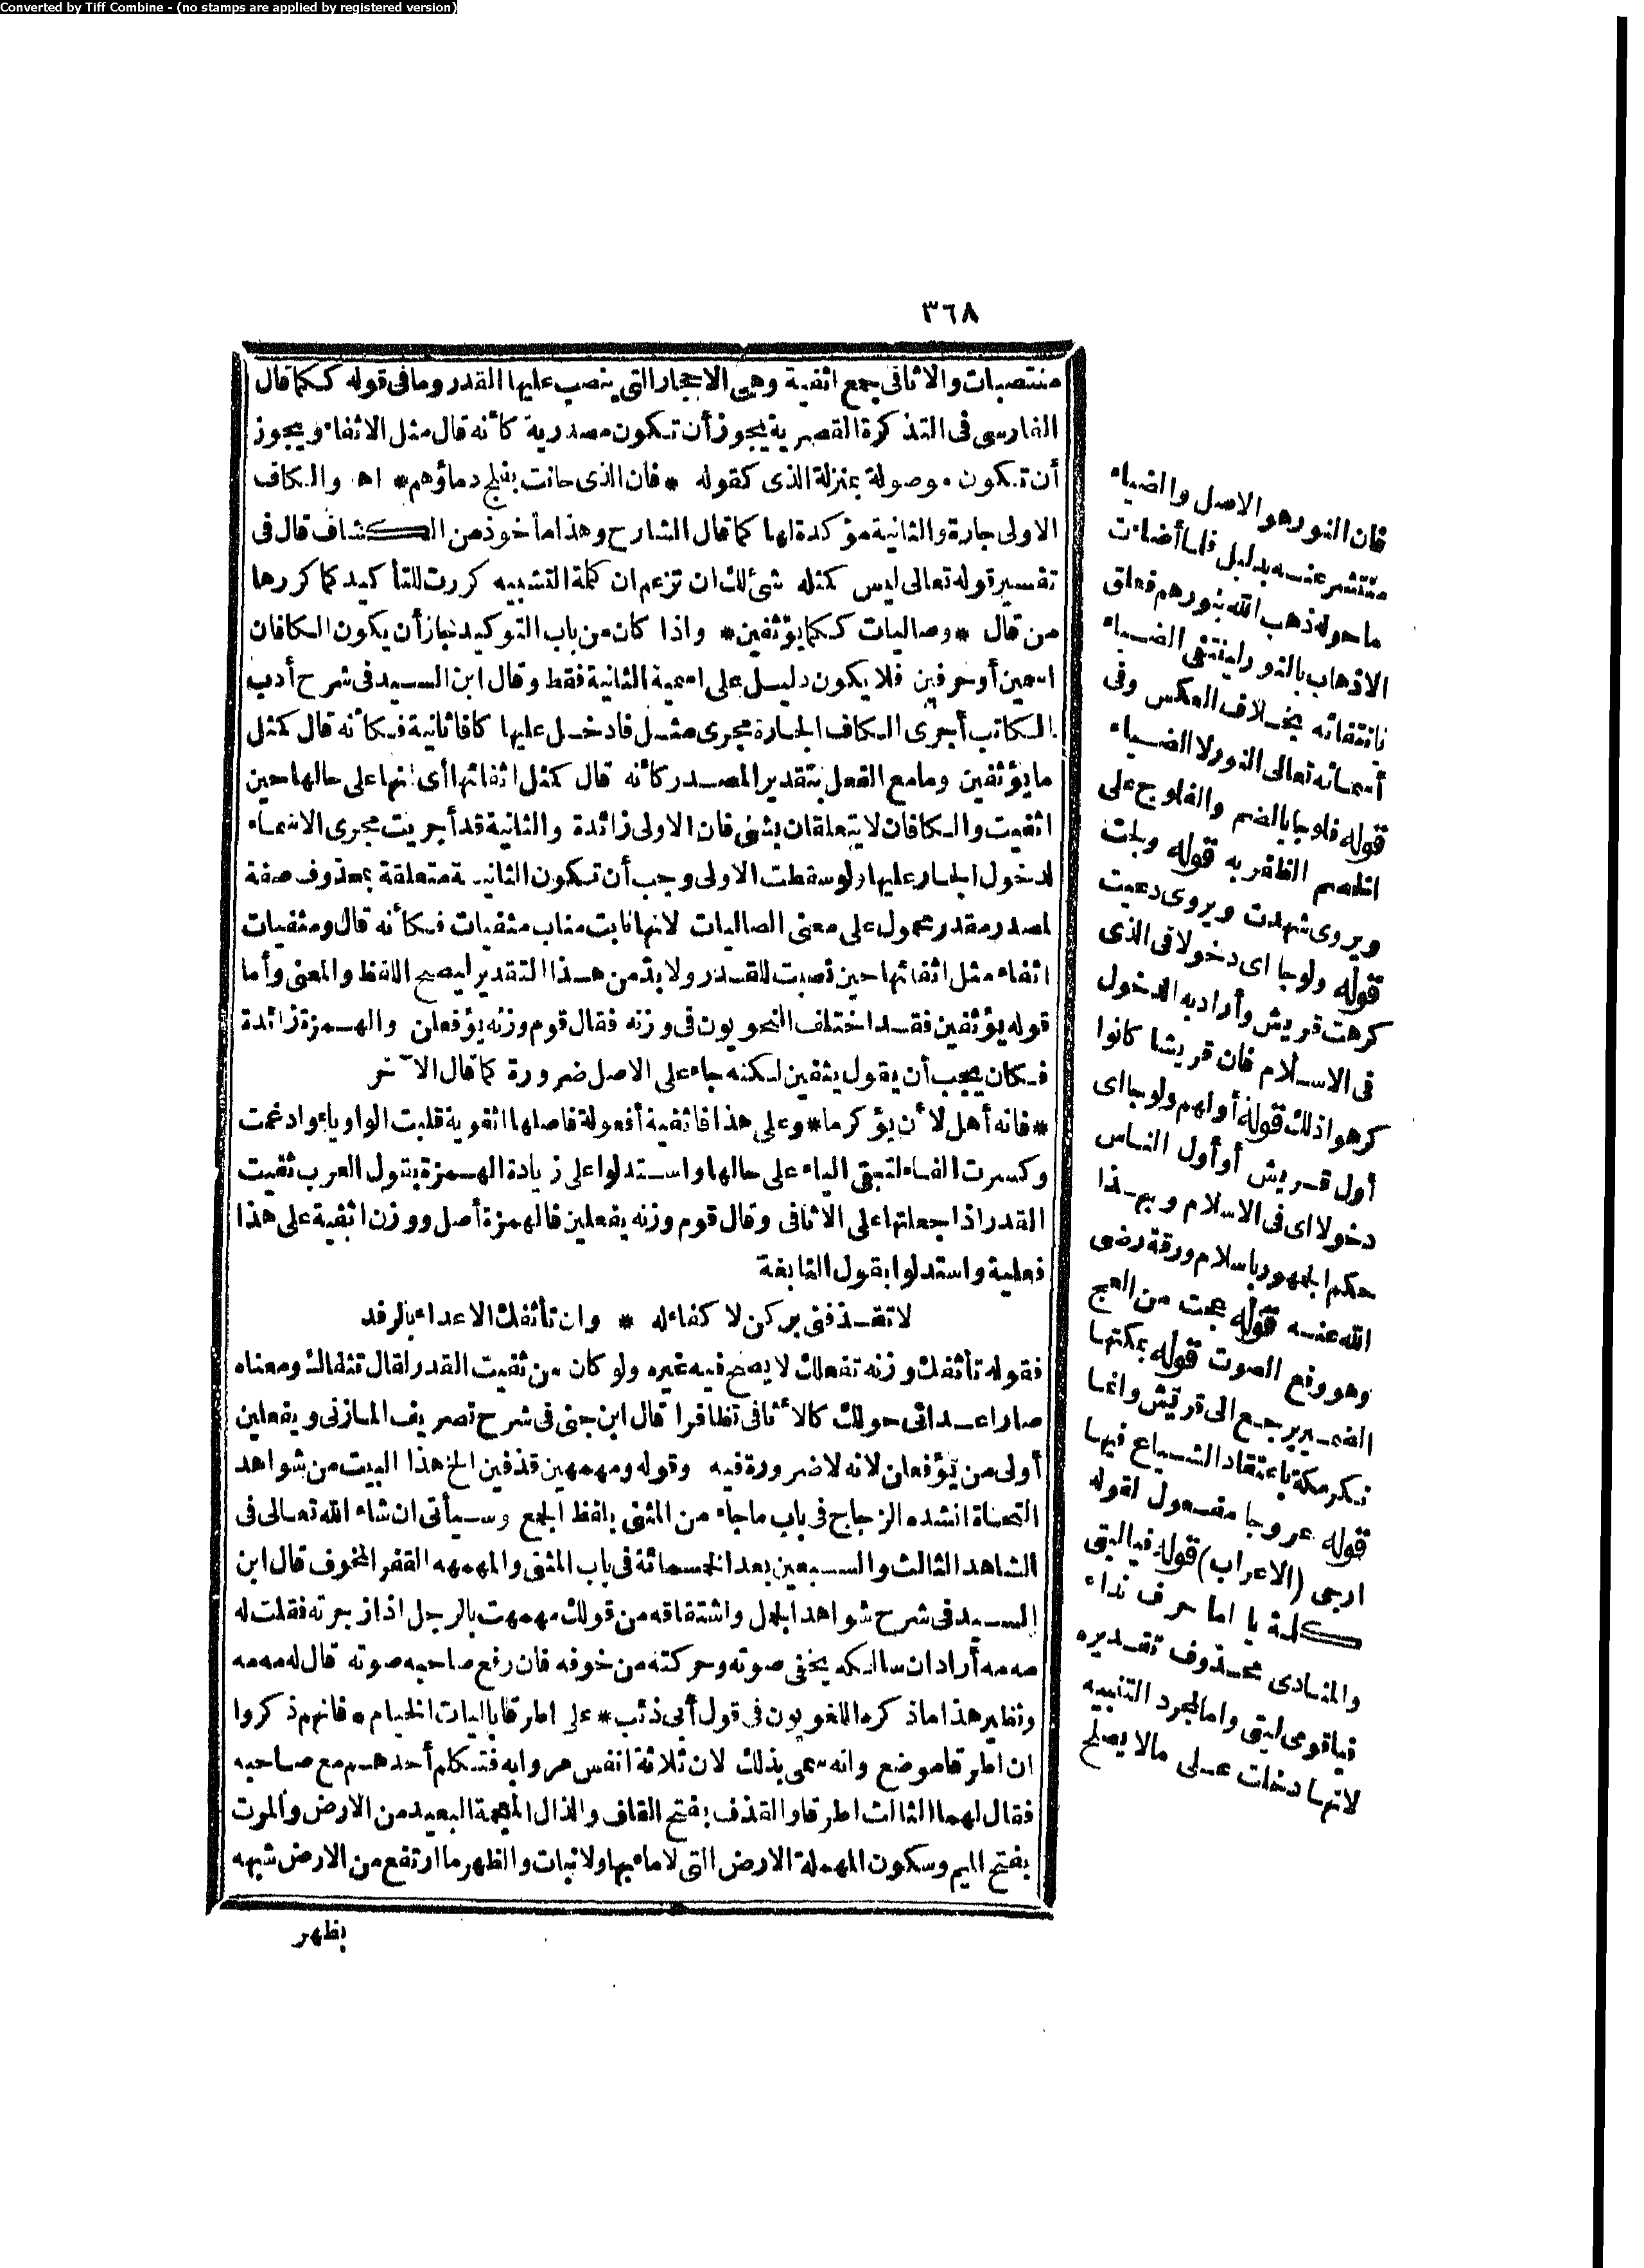 Converted by Tiff Combine - (no stamps are applied by registered version)
٣٦٨
منتصبات والاثافى جمع اثفية وهى الاحجار التى ينصب عليها القدر وما فى قوله ككما قال
الفارسى فى التذكرة القصرية يجوز أن تكون مصدرية كأنه قال مثل الاثفاء ويجوز
أن تكون موصولة بمنزلة الذى كقوله * فان الذى حانت بفلج دماؤهم * اه والكاف
الاولى جارة والثانية مؤكدة لها كما قال الشارح وهذا مأخوذ من الكشاف قال فى
تفسير قوله تعالى ليس كمثله شئ لك ان تزعم ان كلمة التشبيه كررت للتأكيد كما كررها
من قال * وصاليات ككما يؤثفين * واذا كان من باب التوكيد فجاز أن يكون الكافان
اسمين أو حرفين فلا يكون دليل على اسمية الثانية فقط وقال ابن السيد فى شرح أدب
الكاتب أجرى الكاف الجارة مجرى مثل فادخل عليها كافا ثانية فكأنه قال كمثل
ما يؤثفين وما مع الفعل بتقدير المصدر كأنه قال كمثل اثفائها أى انها على حالها حين
اثفيت والكافان لا يتعلقان بشئ فان الاولى زائدة والثانية قد أجريت مجرى الاسماء
لدخول الجار عليها ولو سقطت الاولى وجب أن تكون الثانية متعلقة بمحذوف صفة
لمصدر مقدر محمول على معنى الصاليات لانها نابت مناب مثفيات فكأنه قال ومثفيات
اثفاء مثل اثفائها حين نصبت للقدر ولا بد من هذا التقدير ليصح اللفظ والمعنى وأما
قوله يؤثفين فقد اختلف النحويون فى وزنه فقال قوم وزنه يؤفعلن والهمزة زائدة
فكان يجب أن يقول يثفين لكنه جاء على الاصل ضرورة كما قال الآخر
* فانه أهل لأن يؤكرما * وعلى هذا فاثفية أفعولة فاصلها اثفوية قلبت الواو ياء وادغمت
وكسرت الفاء لتبقى الياء على حالها واستدلوا على زيادة الهمزة بقول العرب ثفيت
القدر اذا جعلتها على الاثافى وقال قوم وزنه يفعلين فالهمزة أصل ووزن اثفية على هذا
فعلية واستدلوا بقول النابغة
لا تقذفنى بركن لا كفاء له * وان تأثفك الاعداء بالرفد
فقوله تأثفك وزنه تفعلك لا يصح فيه غيره ولو كان من ثفيت القدر لقال تثفاك ومعناه
صار اعدائى حولك كالأثافى تظافرا قال ابن جنى فى شرح تصريف المازنى ويفعلين
أولى من يؤفعلن لانه لا ضرورة فيه وقوله ومهمهين قذفين الخ هذا البيت من شواهد
النحاة انشده الزجاج فى باب ما جاء من المثنى بلفظ الجمع وسيأتى ان شاء الله تعالى فى
الشاهد الثالث والسبعين بعد الخمسمائة فى باب المثنى والمهمه القفر المخوف قال ابن
السيد فى شرح شواهد الجمل واشتقاقه من قولك مهمهت بالرجل اذا زجرته فقلت له
مه مه أراد ان سالكه يخفى صوته وحركته من خوفه فان رفع صاحبه صوته قال له مه مه
ونظير هذا ما ذكره اللغويون فى قول أبى ذئب * على اطرقا باليات الخيام * فانهم ذكروا
ان اطرقا موضع وانه سمى بذلك لان ثلاثة انفس مروا به فتكلم أحدهم مع صاحبه
فقال لهما الثالث اطرقا والقذف بفتح القاف والذال المعجمة البعيد من الارض والمرت
بفتح الميم وسكون المهملة الارض التى لا ماء بها ولا نبات والظهر ما ارتفع من الارض شبهه
بظهر
فان النور هو الاصل والضياء
منتشر عنه بدليل فلما أضاءت
ما حوله ذهب الله بنورهم فعلق
الاذهاب بالنور لينتفى الضياء
بانتفائه بخلاف العكس وفى
أسمائه تعالى النور لا الضياء
قوله فلوجا بالضم والفلوج على
الخصم الظفر به قوله ولجت
ويروى شهدت ويروى دعيت
قوله ولوجا اى دخولا فى الذى
كرهت قريش وأراد به الدخول
فى الاسلام فان قريشا كانوا
كرهوا ذلك قوله أولهم ولوجا اى
أول قريش أو أول الناس
دخولا اى فى الاسلام وبهذا
حكم الجمهور باسلام ورقة رضى
الله عنه قوله عجت من العج
وهو رفع الصوت قوله بمكتها
الضمير يرجع الى قريش وانما
نكر مكة باعتقاد الشياع فيها
قوله عروجا مفعول لقوله
ارجى (الاعراب) قوله فياليتى
كلمة يا اما حرف نداء
والمنادى محذوف تقديره
فياقومى ليتى واما لمجرد التنبيه
لانها دخلت على مالا يصلح